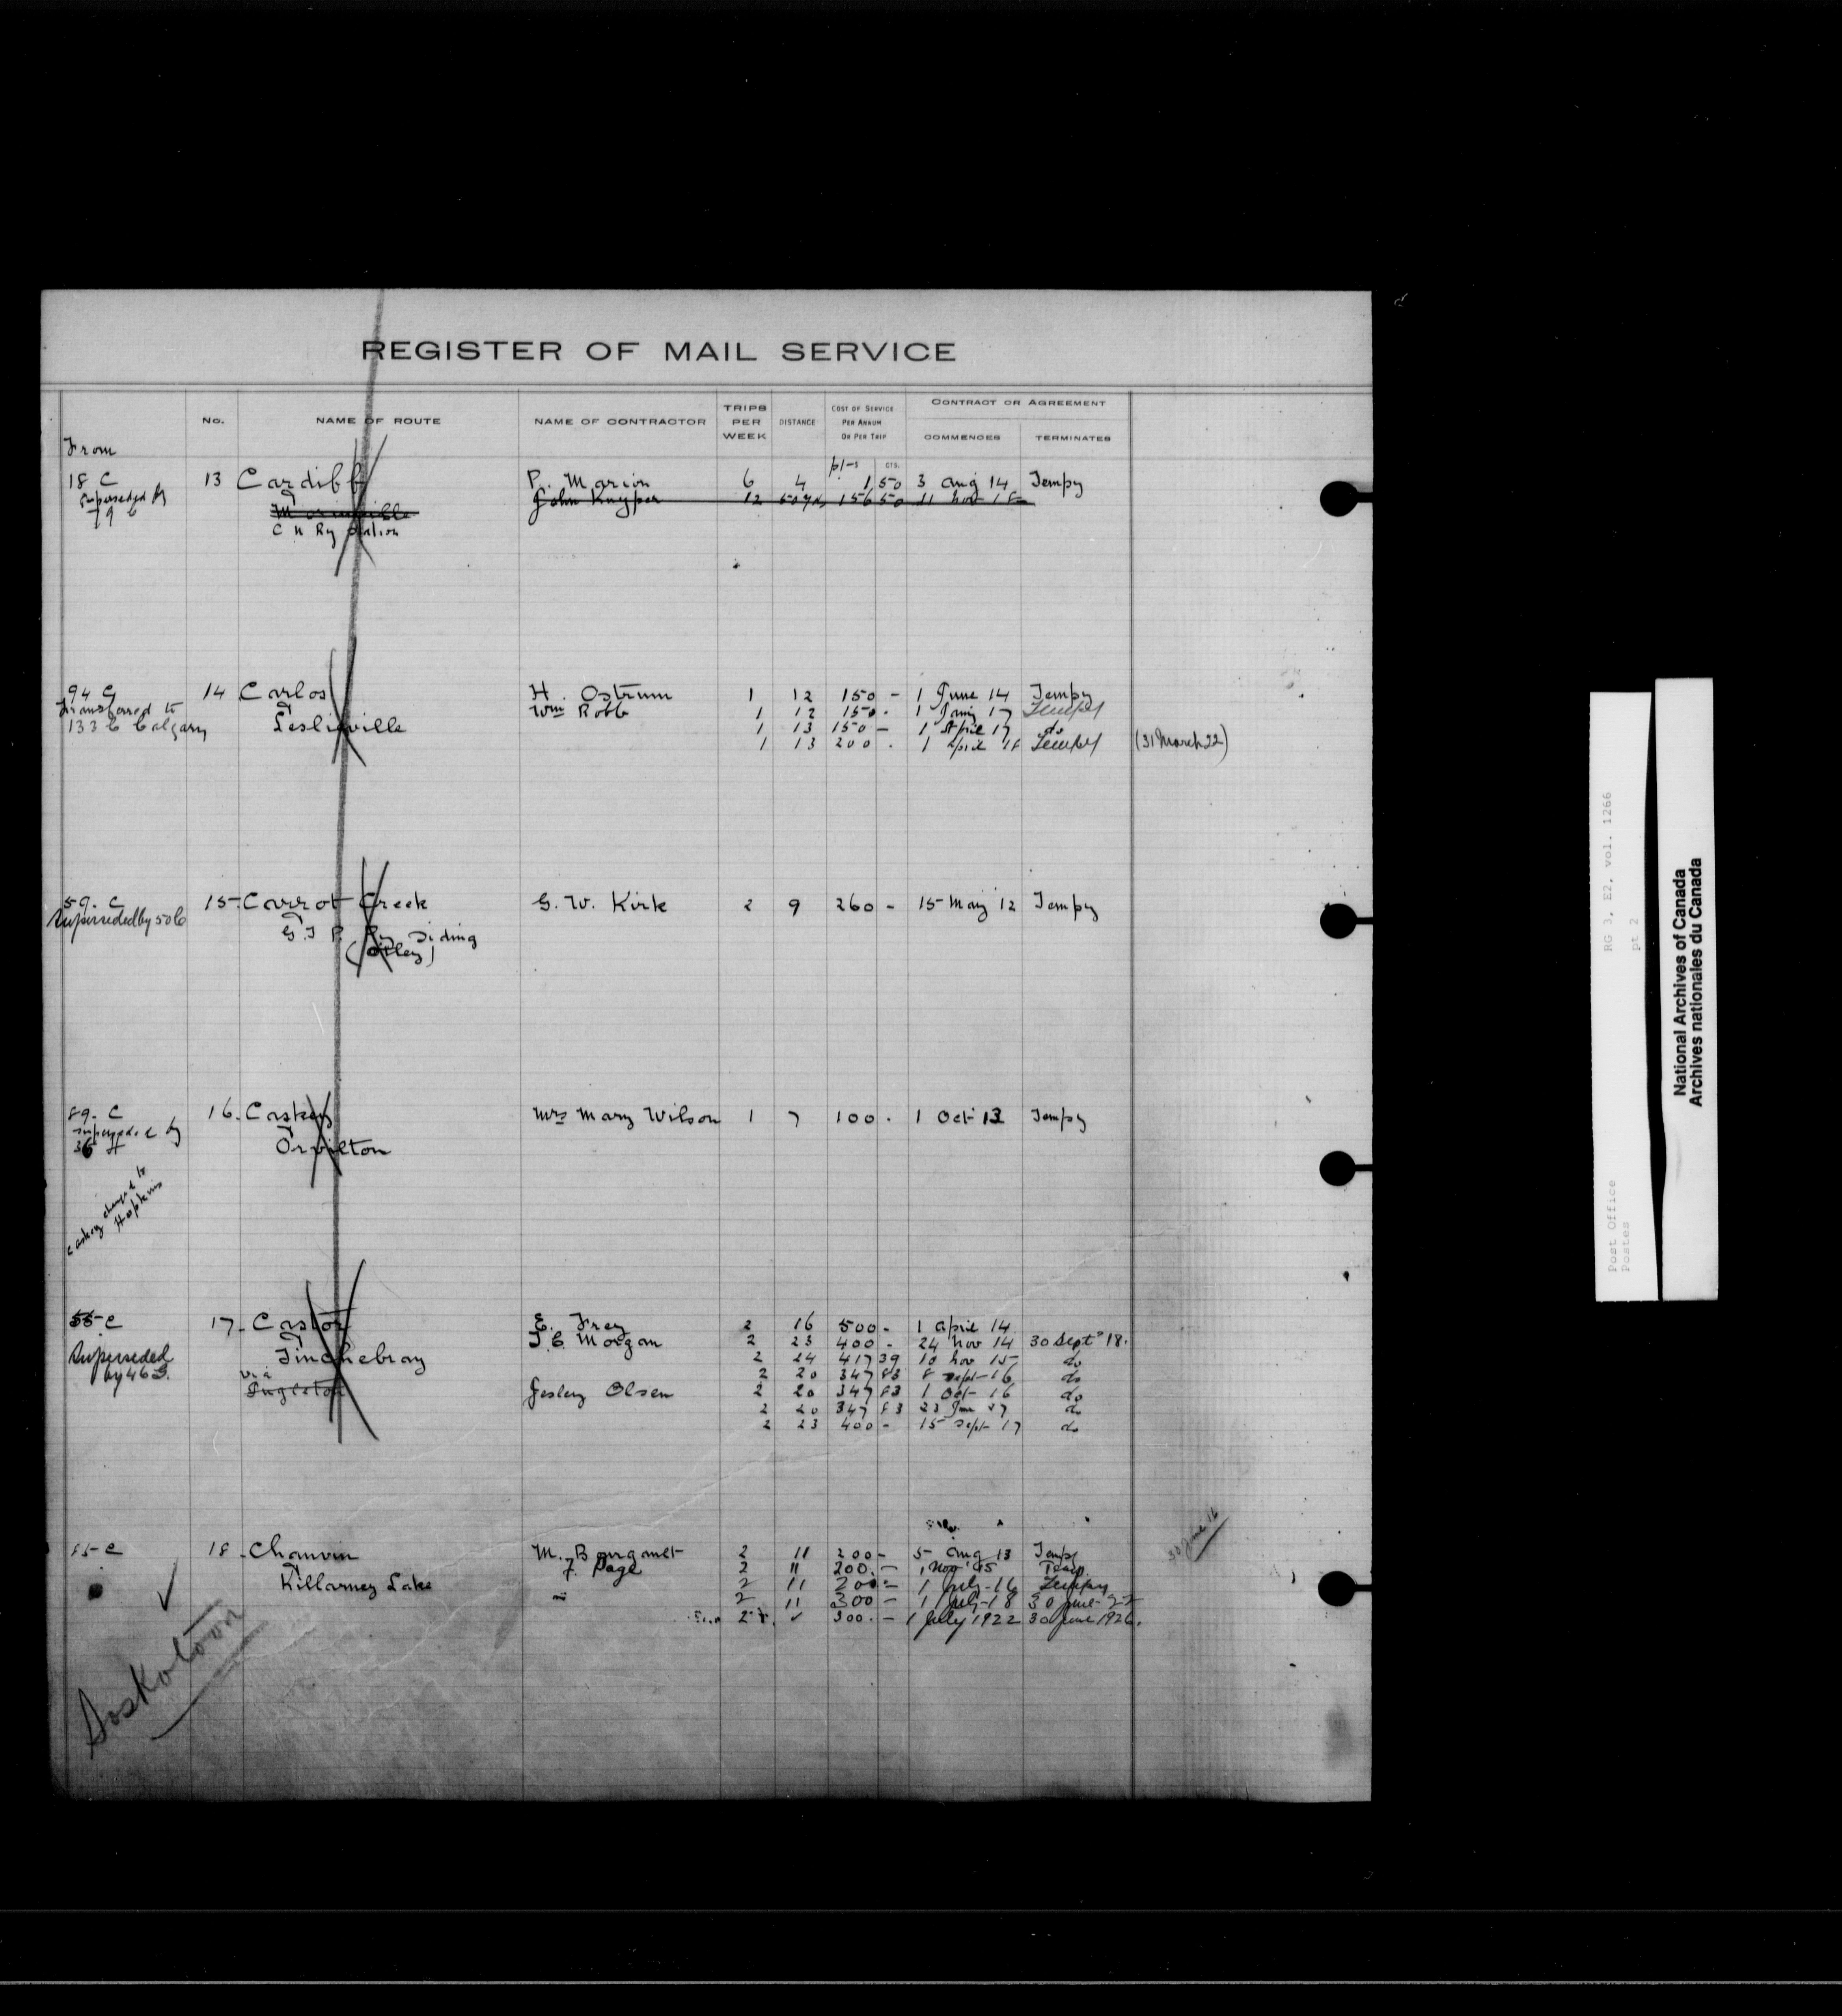 REGISTER OF MAIL SERVICE
From No. NAME OF ROUTE NAME OF CONTRACTOR TRIPS PER WEEK DISTANCE COST OF SERVICE PER ANNUM OR PER TRIP CONTRACT OR AGREEMENT COMMENCES TERMINATES
CTS.
18 C 13 Cardiff P. Marion 6 4 1 50 3 Aug 14 Tempy
Superseded by John Knyper 12 156 50 11 Nov 18
79 C
C N Ry Station
94 C 14 Carlos H. Ostrum 1 12 150 - 1 June 14 Tempy
Transferred to Wm Robb 1 12 150 . 1 Jany 17 Tempy
133 C Calgary Leslieville 1 13 150 - 1 April 17 do
1 13 200 . 1 April 18 Tempy (31 March 22)
59. C 15 Carrot Creek G. W. Kirk 2 9 260 - 15 May 12 Tempy
Superseded by 50 C
G T P Ry Siding
16. Caskey Mrs Mary Wilson 1 7 100 . 1 Oct 13 Tempy
89. C
superseded by
36 H Orvilton
Caskey changed to
Hopkins
55 C 17. Castor E. Frey 2 16 500 - 1 April 14
T. C. Morgan 2 23 400 - 24 Nov 14 30 Sept 18.
Superseded Tinchebray 2 24 417 39 10 Nov 15 do
by 46 G. via 2 20 347 83 8 Sept 16 do
Ingleton Jesley Olsen 2 20 347 83 1 Oct 16 do
2 20 347 83 do
2 23 400 - 15 Sept 17 do
30 June 16
85 C 18. Chauvin M. Bourgault 2 11 200 - 5 Aug 13 Tempy
F. Page 2 11 200. - 1 Nov 15 Temp.
Killarney Lake 2 11 200 - 1 July 16 Tempy
2 11 300 - 1 July-18 30 June-22
300. - 1 July 1922 30 June 1926.
Saskatoon
RG 3, E2, vol. 1266
pt 2
Post Office
Postes
National Archives of Canada
Archives nationales du Canada